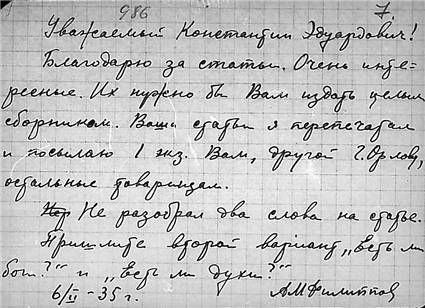 986 7.
Уважаемый Константин Эдуардович!
Благодарю за статьи. Очень инте-
ресные. Их нужно бы Вам издать целым
сборником. Ваши статьи я перепечатал
и посылаю 1 экз. Вам, другой г. Орлову,
остальные товарищам.
Не разобрал два слова на статье.
Пришлите второй вариант „Есть ли
бог?" и „Есть ли духи?"
6/II - 35 г. АМФилиппов